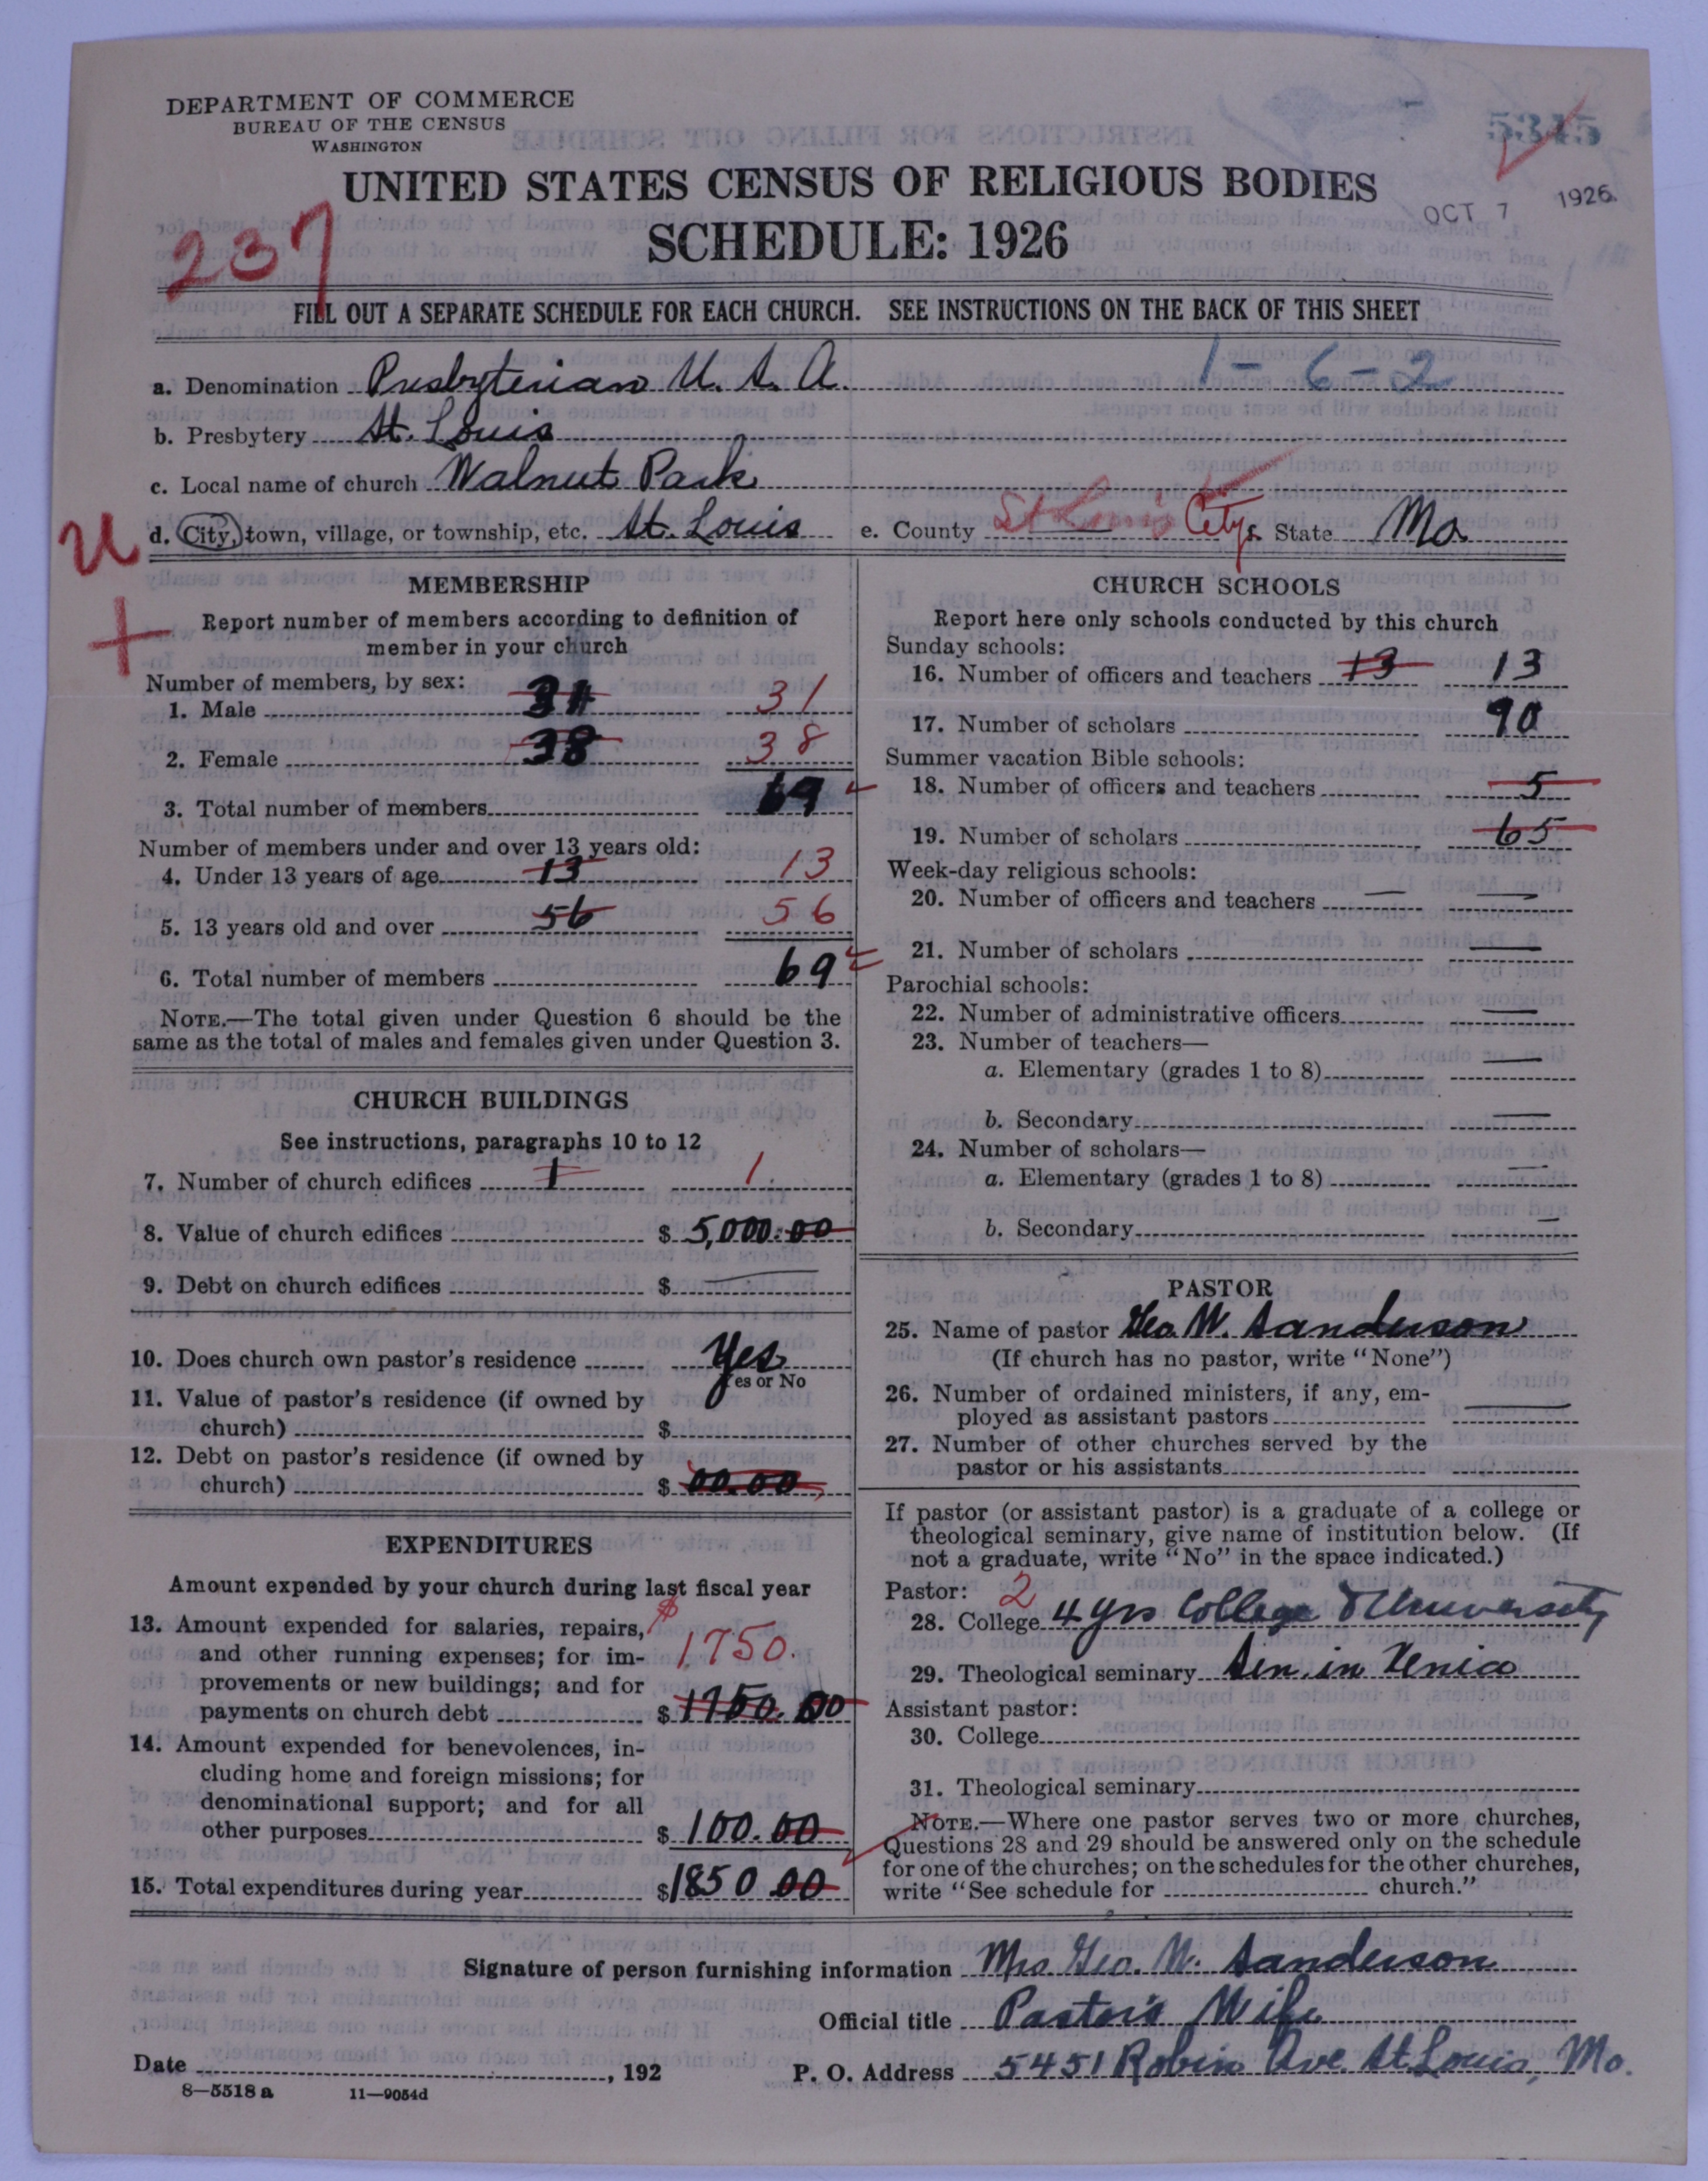 DEPARTMENT OF COMMERCE
BUREAU OF THE CENSUS
WASHINGTON
5345
UNITED STATES CENSUS OF RELIGIOUS BODIES
OCT 7 1926
SCHEDULE: 1926
237
FILL OUT A SEPARATE SCHEDULE FOR EACH CHURCH. SEE INSTRUCTIONS ON THE BACK OF THIS SHEET
1-6-2
a. Denomination Presbyterian U. S. A.
b. Presbytery St. Louis
c. Local name of church Walnut Park
U d. City, town, village, or township, etc. St. Louis e. County St Louis City State Mo
+
MEMBERSHIP
Report number of members according to definition of
member in your church
Number of members, by sex:
1. Male 31 31
2. Female 38 38
3. Total number of members 69
Number of members under and over 13 years old:
4. Under 13 years of age 13 13
5. 13 years old and over 56 56
6. Total number of members 69
NOTE.—The total given under Question 6 should be the
same as the total of males and females given under Question 3.
CHURCH BUILDINGS
See instructions, paragraphs 10 to 12
7. Number of church edifices 1 1
8. Value of church edifices $ 5,000.00
9. Debt on church edifices $ —
10. Does church own pastor's residence Yes
Yes or No
11. Value of pastor's residence (if owned by
church) $
12. Debt on pastor's residence (if owned by
church) $ 00.00
EXPENDITURES
Amount expended by your church during last fiscal year
13. Amount expended for salaries, repairs, $
and other running expenses; for im- 1750.
provements or new buildings; and for
payments on church debt $ 1750.00
14. Amount expended for benevolences, in-
cluding home and foreign missions; for
denominational support; and for all
other purposes $ 100.00
15. Total expenditures during year $1850.00
CHURCH SCHOOLS
Report here only schools conducted by this church
Sunday schools:
16. Number of officers and teachers 13 13
17. Number of scholars 90
Summer vacation Bible schools:
18. Number of officers and teachers 5
19. Number of scholars 65
Week-day religious schools:
20. Number of officers and teachers — —
21. Number of scholars — —
Parochial schools:
22. Number of administrative officers —
23. Number of teachers—
a. Elementary (grades 1 to 8) —
b. Secondary —
24. Number of scholars—
a. Elementary (grades 1 to 8) —
b. Secondary —
PASTOR
25. Name of pastor Geo. W. Sanderson
(If church has no pastor, write "None")
26. Number of ordained ministers, if any, em-
ployed as assistant pastors —
27. Number of other churches served by the
pastor or his assistants
If pastor (or assistant pastor) is a graduate of a college or
theological seminary, give name of institution below. (If
not a graduate, write "No" in the space indicated.)
Pastor: 2
28. College 4 yrs College & University
29. Theological seminary Sem. in Xenia
Assistant pastor:
30. College
31. Theological seminary
NOTE.—Where one pastor serves two or more churches,
Questions 28 and 29 should be answered only on the schedule
for one of the churches; on the schedules for the other churches,
write "See schedule for church."
Signature of person furnishing information Mrs Geo. W. Sanderson
Official title Pastor's Wife
Date , 192 P. O. Address 5451 Robin Ave. St. Louis, Mo.
8—5518 a 11—9054d